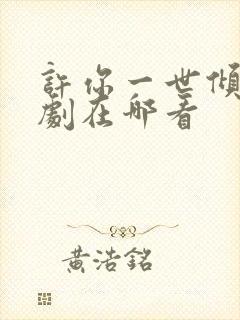 許你一世傾
劇在哪看
黃浩銘